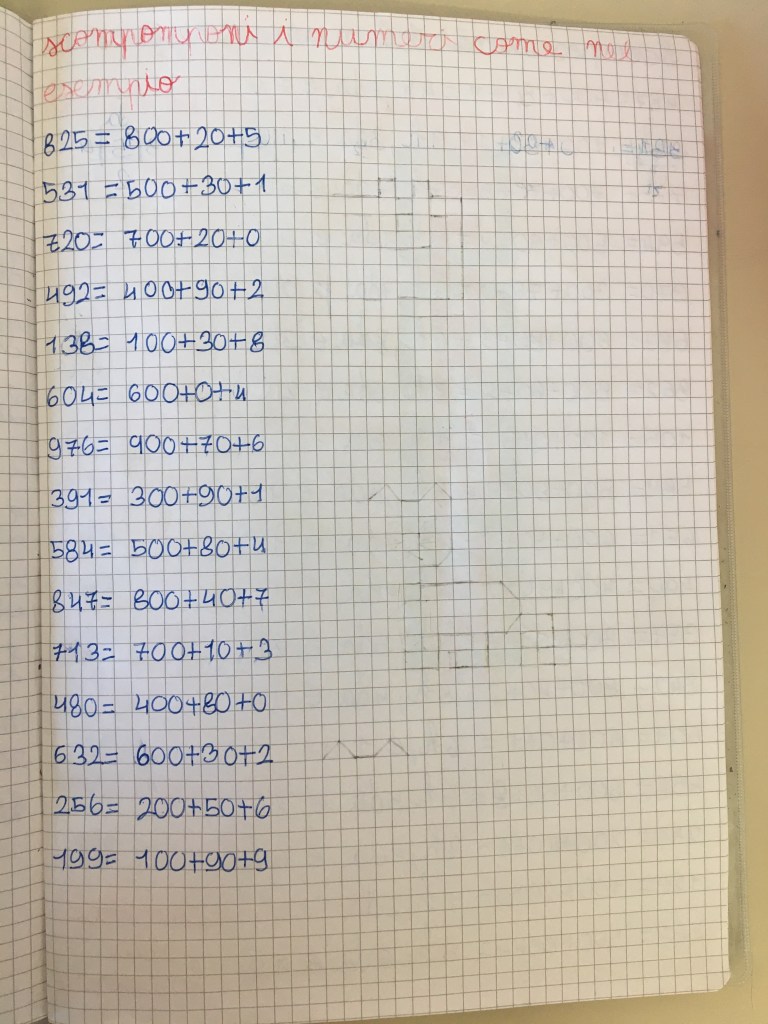 scompomponi i numeri come nel
esempio
825= 800+20+5
531 =500+30+1
720= 700+20+0
492= 400+90+2
138= 100+30+8
604= 600+0+4
976= 900+70+6
391= 300+90+1
584= 500+80+4
847= 800+40+7
713= 700+10+3
480= 400+80+0
632= 600+30+2
256= 200+50+6
199= 100+90+9